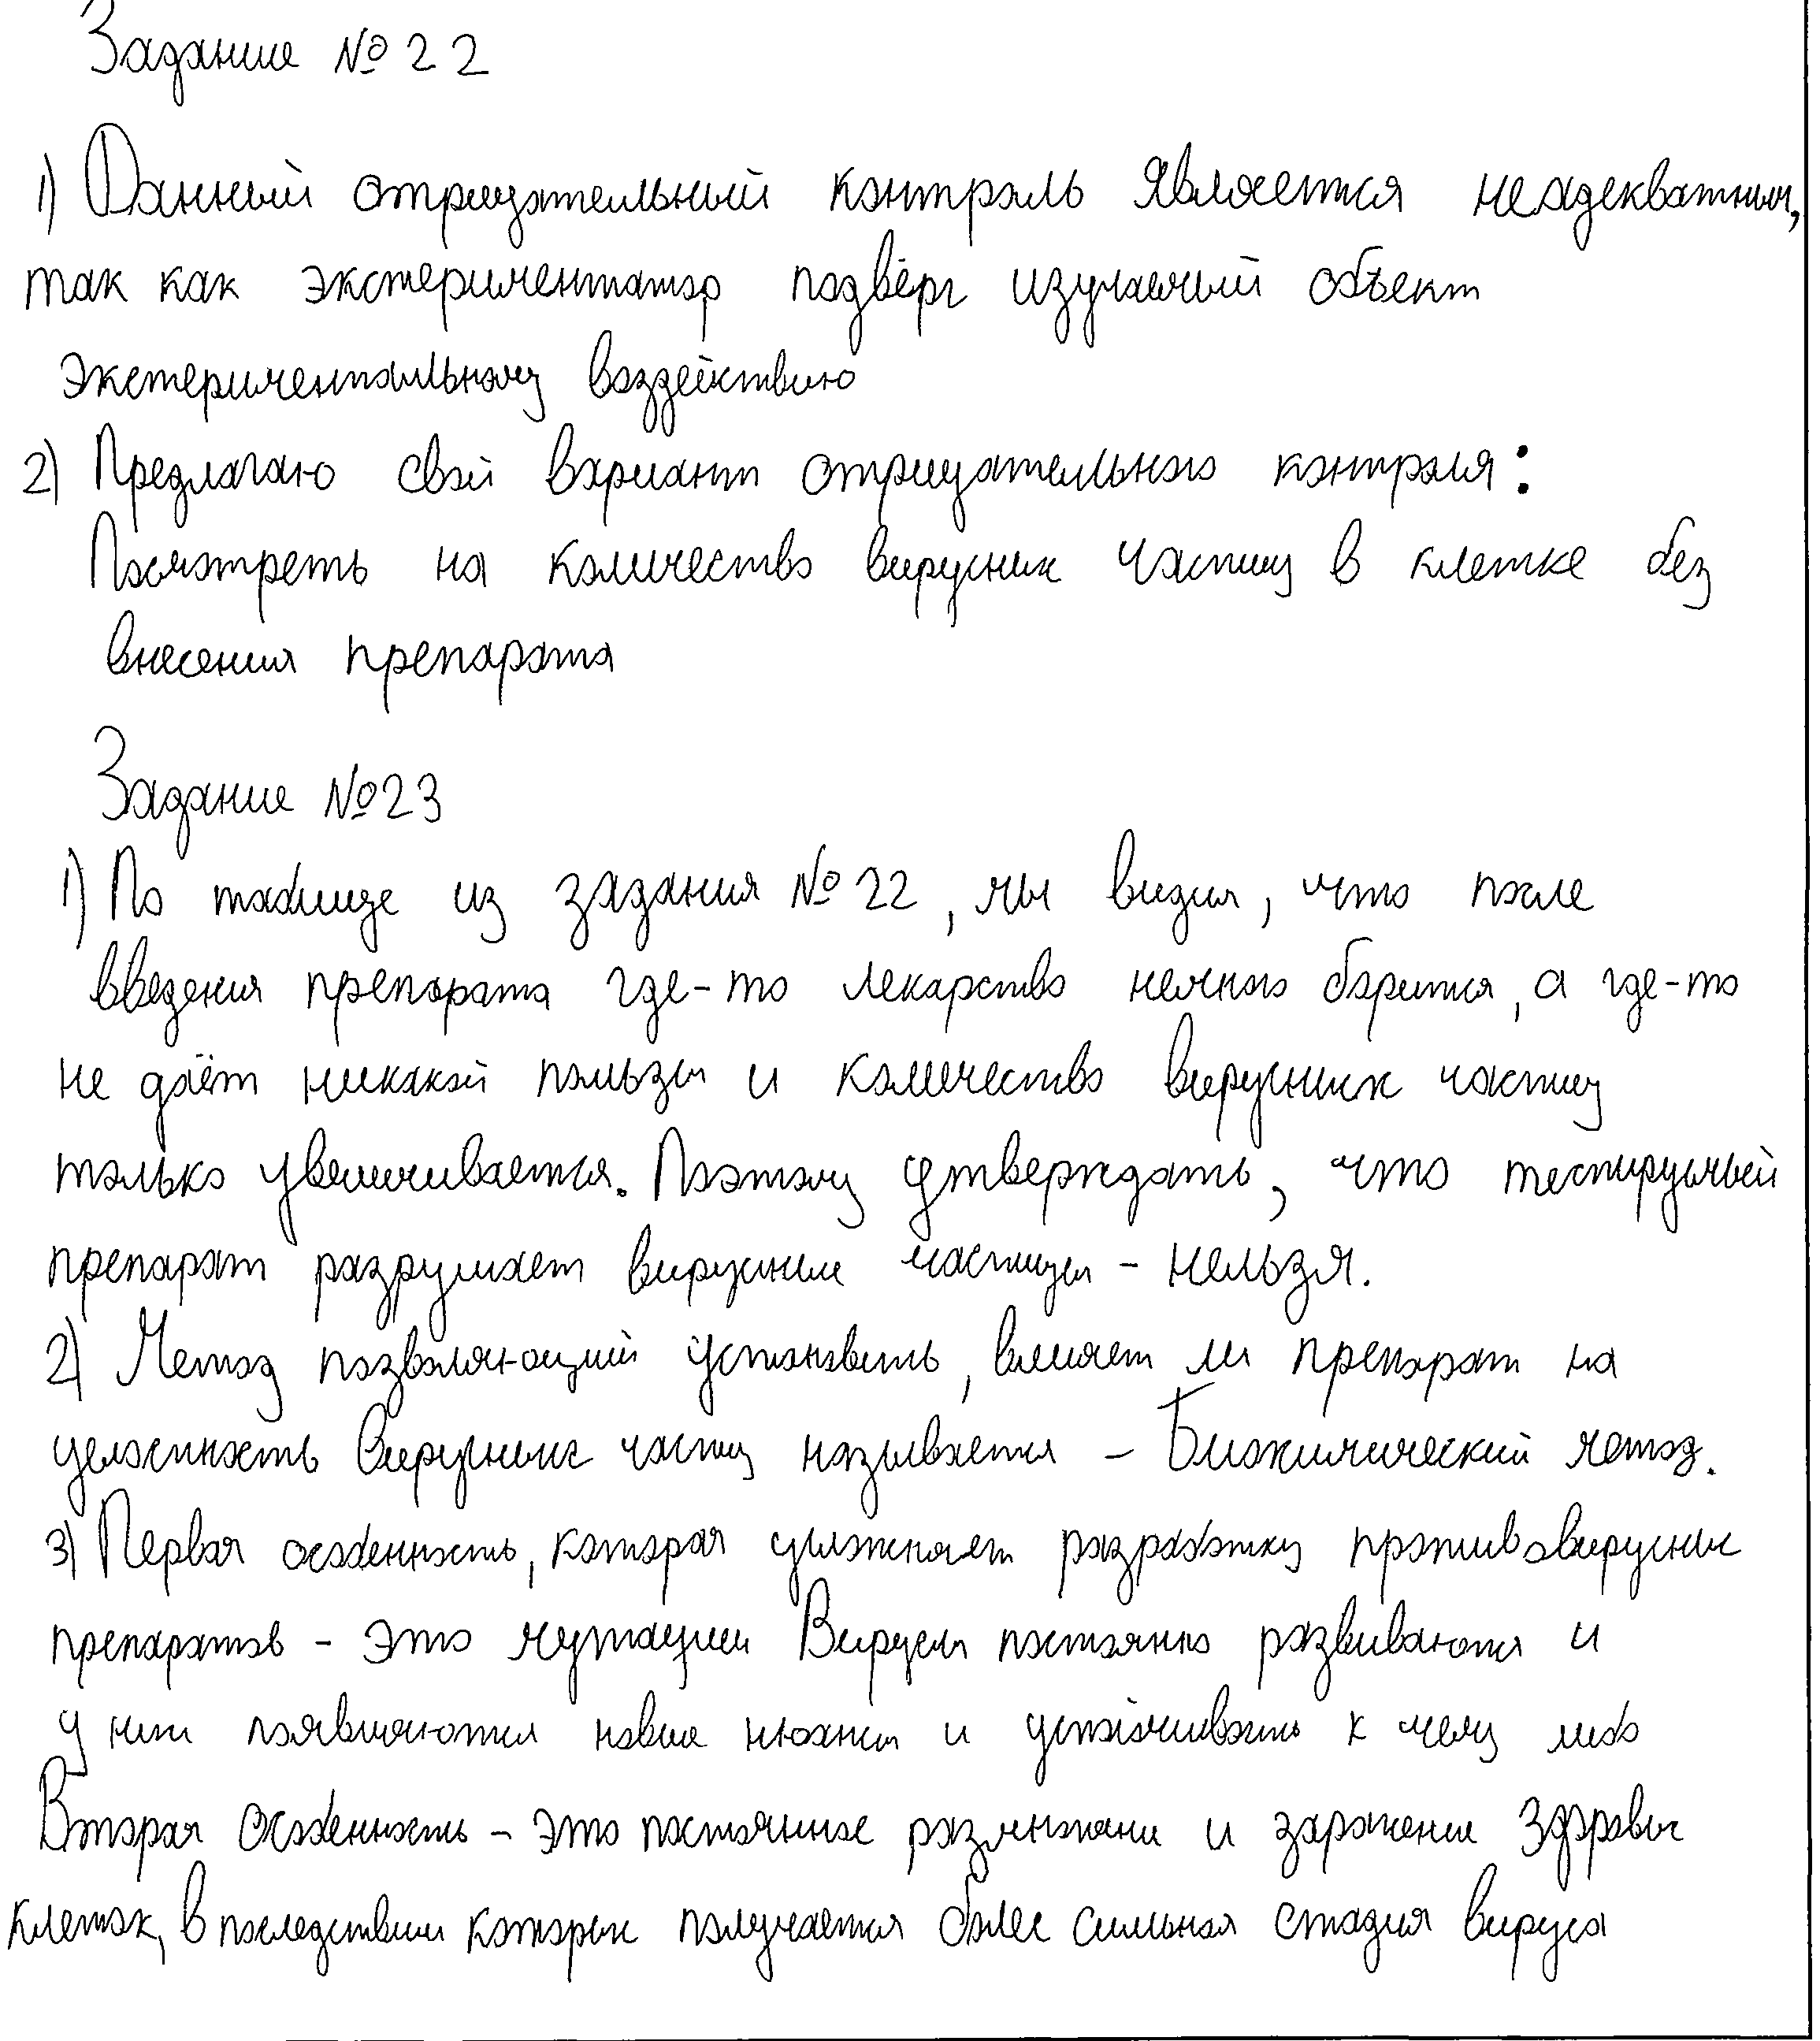 Задание №22
1) Данный отрицательный контроль является неадекватным,
так как экспериментатор подверг изучаемый объект
экспериментальному воздействию
2) Предлагаю свой вариант отрицательного контроля:
Посмотреть на количество вирусных частиц в клетке без
внесения препарата
Задание №23
1) По таблице из задания №22, мы видим, что после
введения препарата где-то лекарство немного борится, а где-то
не даёт никакой пользы и количество вирусных частиц
только увеличивается. Поэтому утверждать, что тестируемый
препарат разрушает вирусные частицы - нельзя.
2) Метод позволяющий установить, влияет ли препарат на
целостность вирусных частиц называется - Биохимический метод.
3) Первая особенность, которая усложняет разработку противовирусных
препаратов - это мутации Вирусы постоянно развиваются и
у них появляются новые нюансы и устойчивость к чему либо
Вторая особенность - это постоянное размножение и заражение здоровых
клеток, в последствии которых получается более сильная стадия вируса